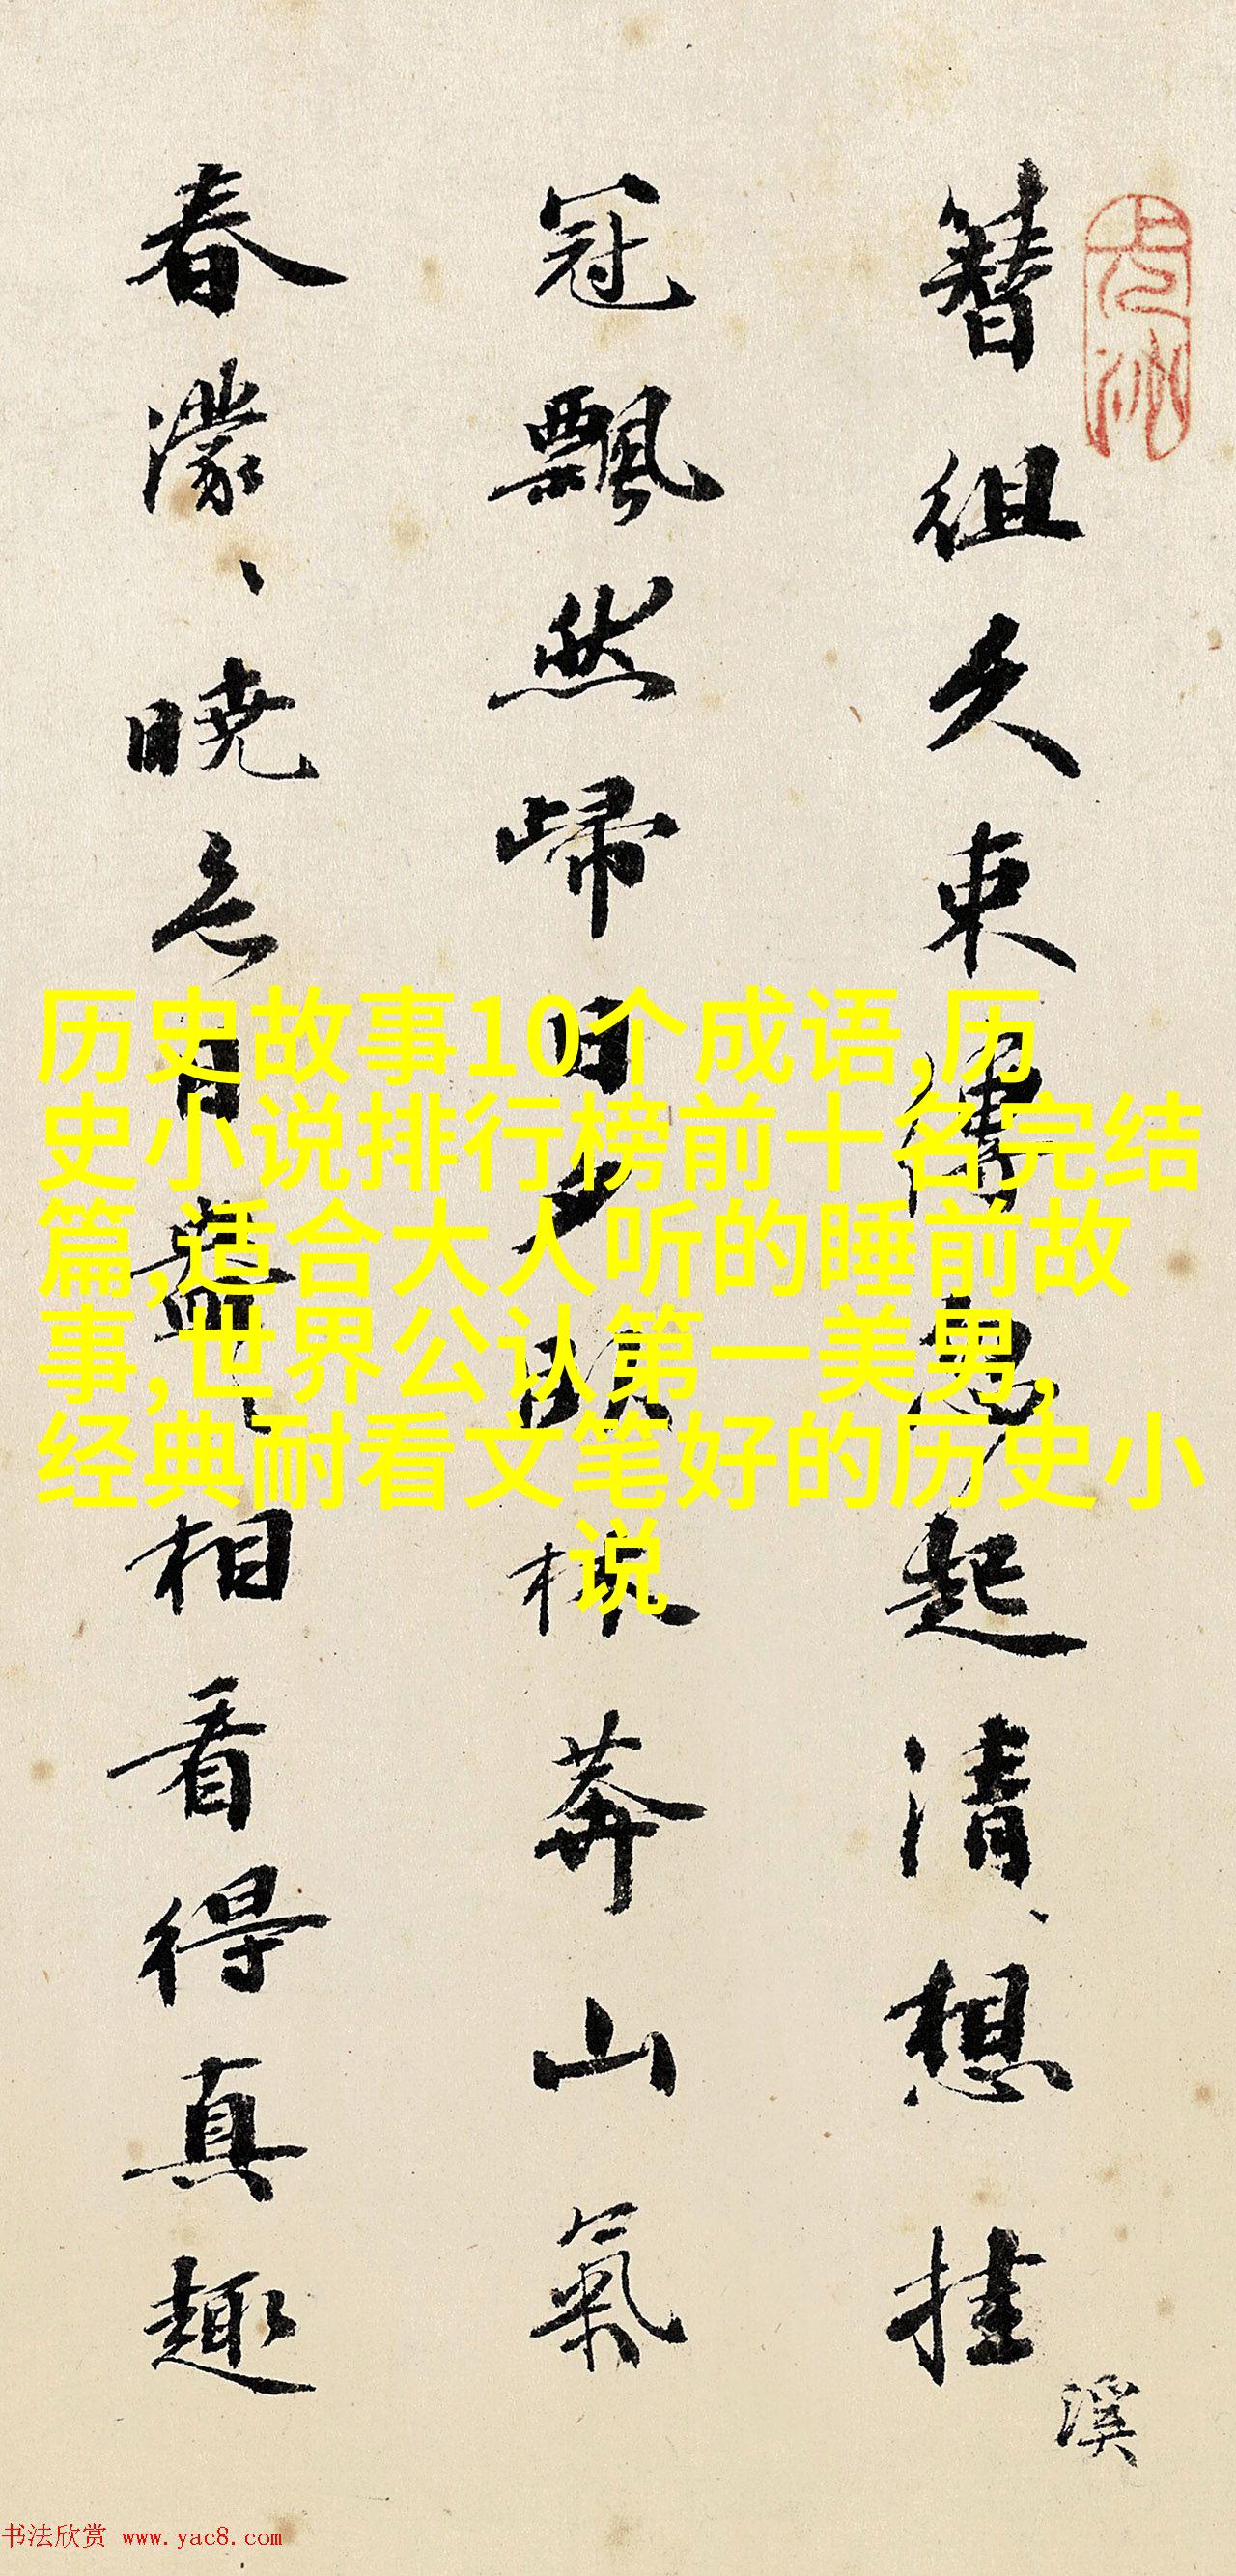 簪组久束缚忽起清想挂
冠飘然歸日夕眺林莽山氣
春濛、晓色日盈、相看得真趣
溪
历史故事10个成语,历
史小说排行榜前十名完结
篇,适合大人听的睡前故
事,世界公认第一美男,
经典耐看文笔好的历史小
说
书法欣赏 www.yac8.com